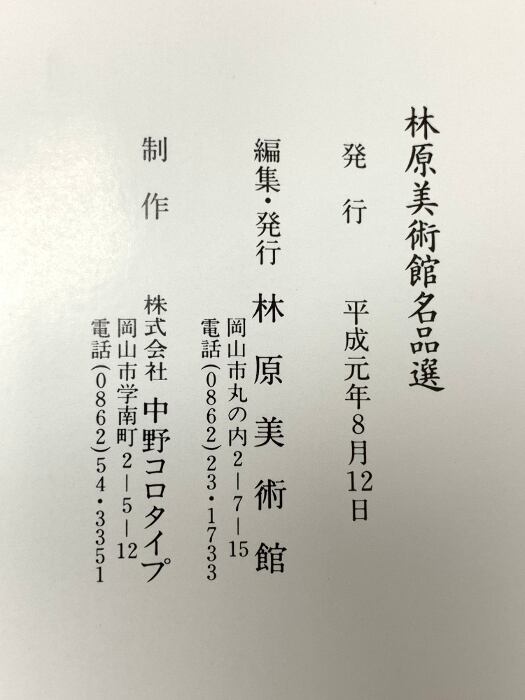 林原美術館名品選
発行 平成元年8月12日
編集・発行 林原美術館
岡山市丸の内2-7-15
電話(0862)23・1733
制作 株式会社 中野コロタイプ
岡山市学南町2-5-12
電話(0862)54・3351